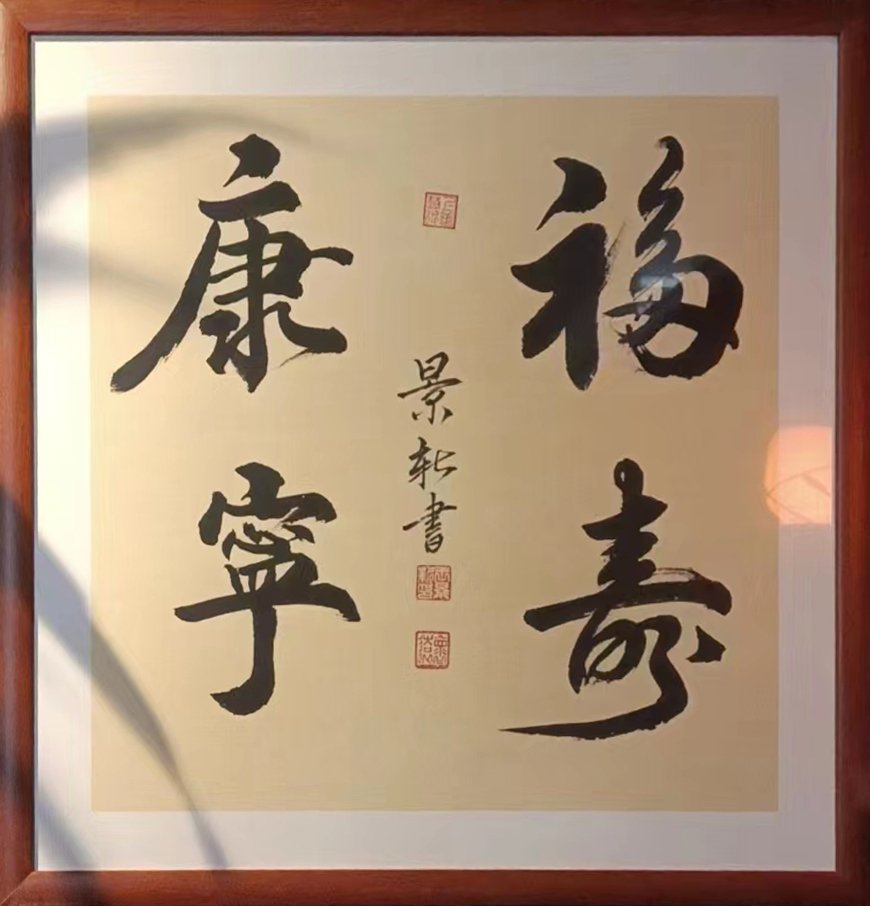 福壽
康寧
景軒書